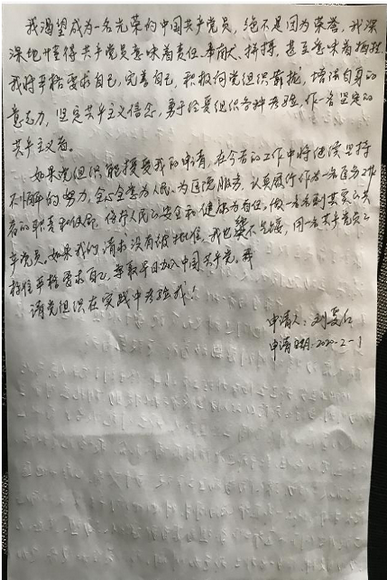 我渴望成为一名光荣的中国共产党员,绝不是因为荣誉,我深
深地懂得共产党员意味着责任、奉献、拼搏,甚至意味着牺牲
我将严格要求自己,完善自己,积极向党组织靠拢,增强自身的
意志力,坚定共产主义信念,勇于经受组织各种考验,作一名坚定的
共产主义者。
如果党组织能接受我的申请,在今后的工作中将继续坚持
不懈的努力,全心全意为人民、为医院服务,认真履行作为一名医务工作
者的职责和使命,保护人民的安全和健康为己任,做一名名副其实的共
产党员,如果我的请求没有被批准,我也决不气馁,同一名共产党员的
标准严格要求自己,争取早日加入中国共产党,
请党组织在实践中考验我!
申请人:刘
申请日期:2020-2-1